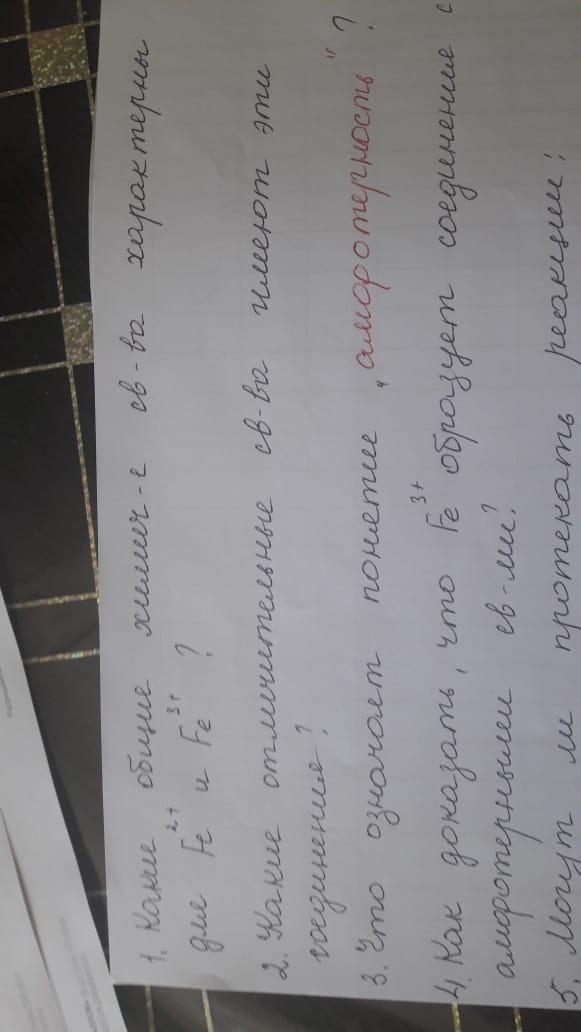 1. Какие общие химич-е св-ва характерны
для Fe²⁺ и Fe³⁺ ?
2. Какие отличительные св-ва имеют эти
соединения?
3. Что означает понятие „амфотерность" ?
4. Как доказать, что Fe³⁺ образует соединение с
амфотерными св-ми?
5. Могут ли протекать реакции: